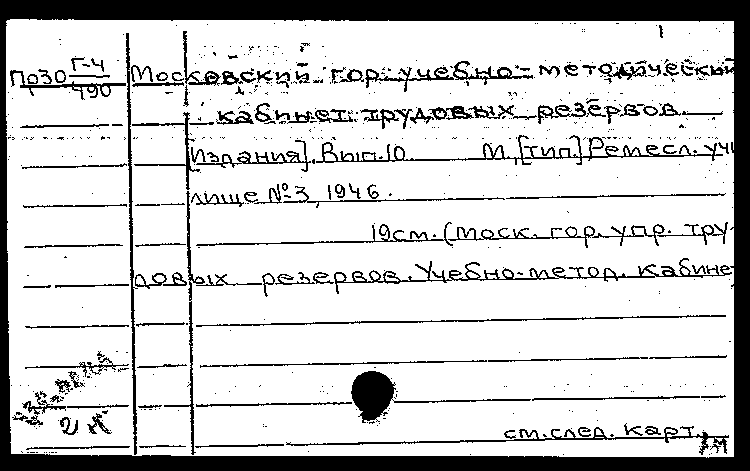 1
П030 Г-4/490 Московский гор. учебно-методический
кабинет трудовых резервов.
[Издания]. Вып. 10. М., [тип.] Ремесл. учи
лище №3, 1946.
19см. (Моск. гор. упр. тру-
довых резервов. Учебно-метод. кабине
2
см. след. карт.